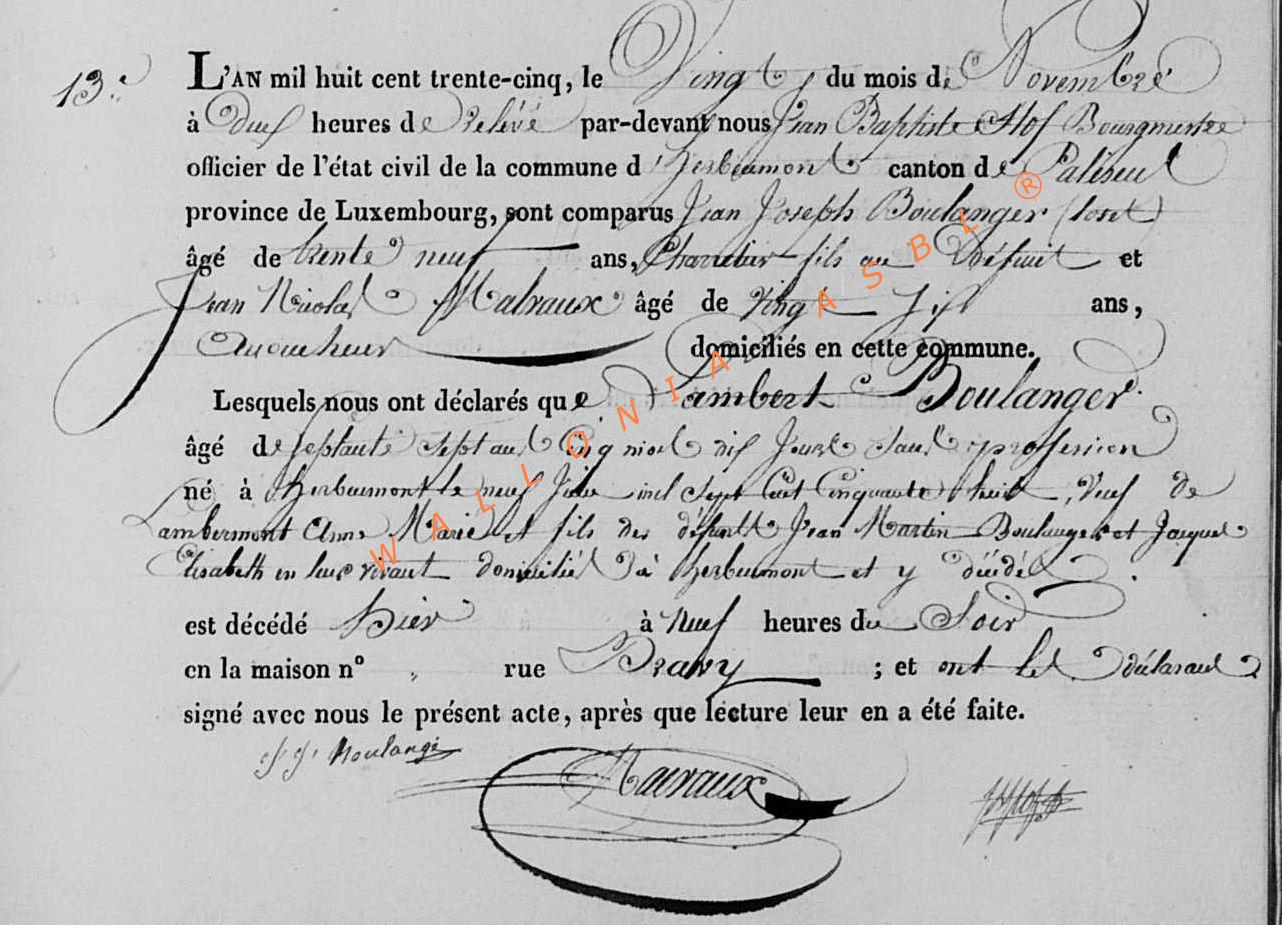 13.e
L'AN mil huit cent trente-cinq, le Vingt du mois de Novembre
à deux heures de relevé par-devant nous Jean Baptiste Hof Bourgmestre
officier de l'état civil de la commune d'herbeumont canton de Paliseul
province de Luxembourg, sont comparus Jean Joseph Boulanger
âgé de trente neuf ans, Charretier fils au défunt et
Jean Nicolas Malraux âgé de vingt six ans,
domiciliés en cette commune.
Lesquels nous ont déclarés que Lambert Boulanger
âgé de septante sept ans Cinq mois dix Jours sans profession
né à herbeumont le neuf Juin mil Sept Cent Cinquante huit, Veuf de
Lambermont Anne Marie et fils des défunts Jean Martin Boulanger et Jacques
Elisabeth en leur vivant domiciliés à herbeumont et y décédés
est décédé hier à neuf heures du Soir
en la maison n° , rue ; et ont les déclarants
signé avec nous le présent acte, après que lecture leur en a été faite.
J J Boulangé
Malraux
WALLONIA ASBL ®